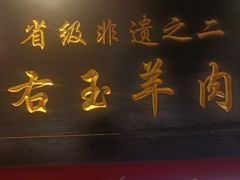 省级非遗之二
右玉羊肉